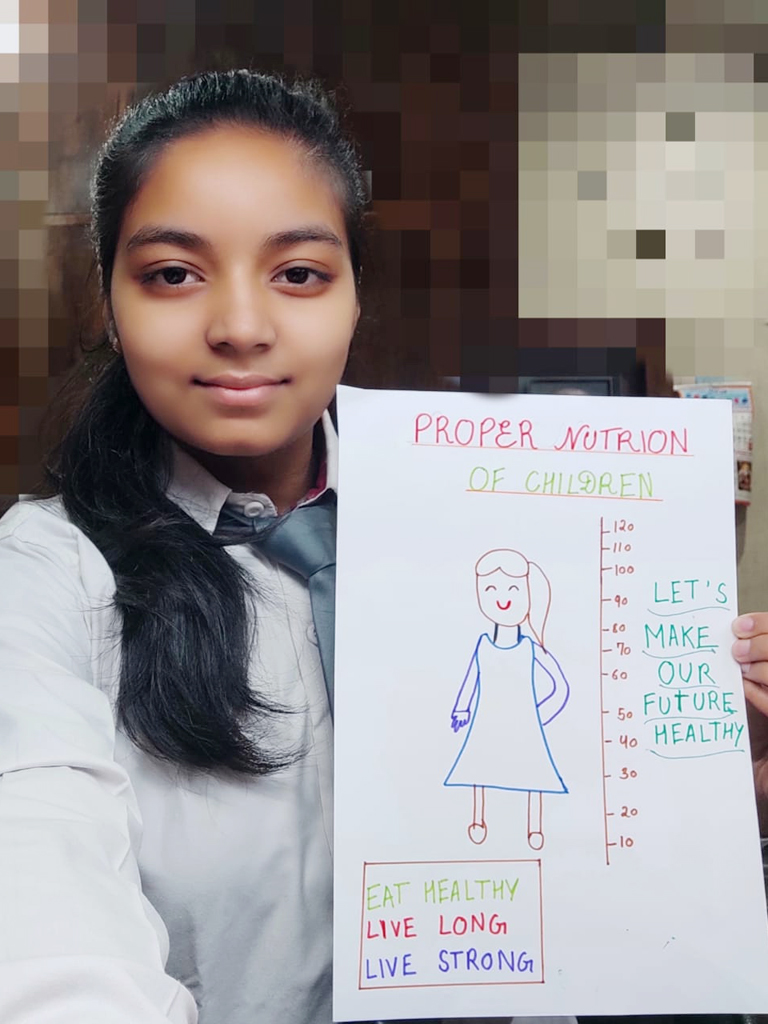 PROPER NUTRION
OF CHILDREN
120
110
100
90
80
70
60
50
40
30
20
10
LET'S
MAKE
OUR
FUTURE
HEALTHY
EAT HEALTHY
LIVE LONG
LIVE STRONG